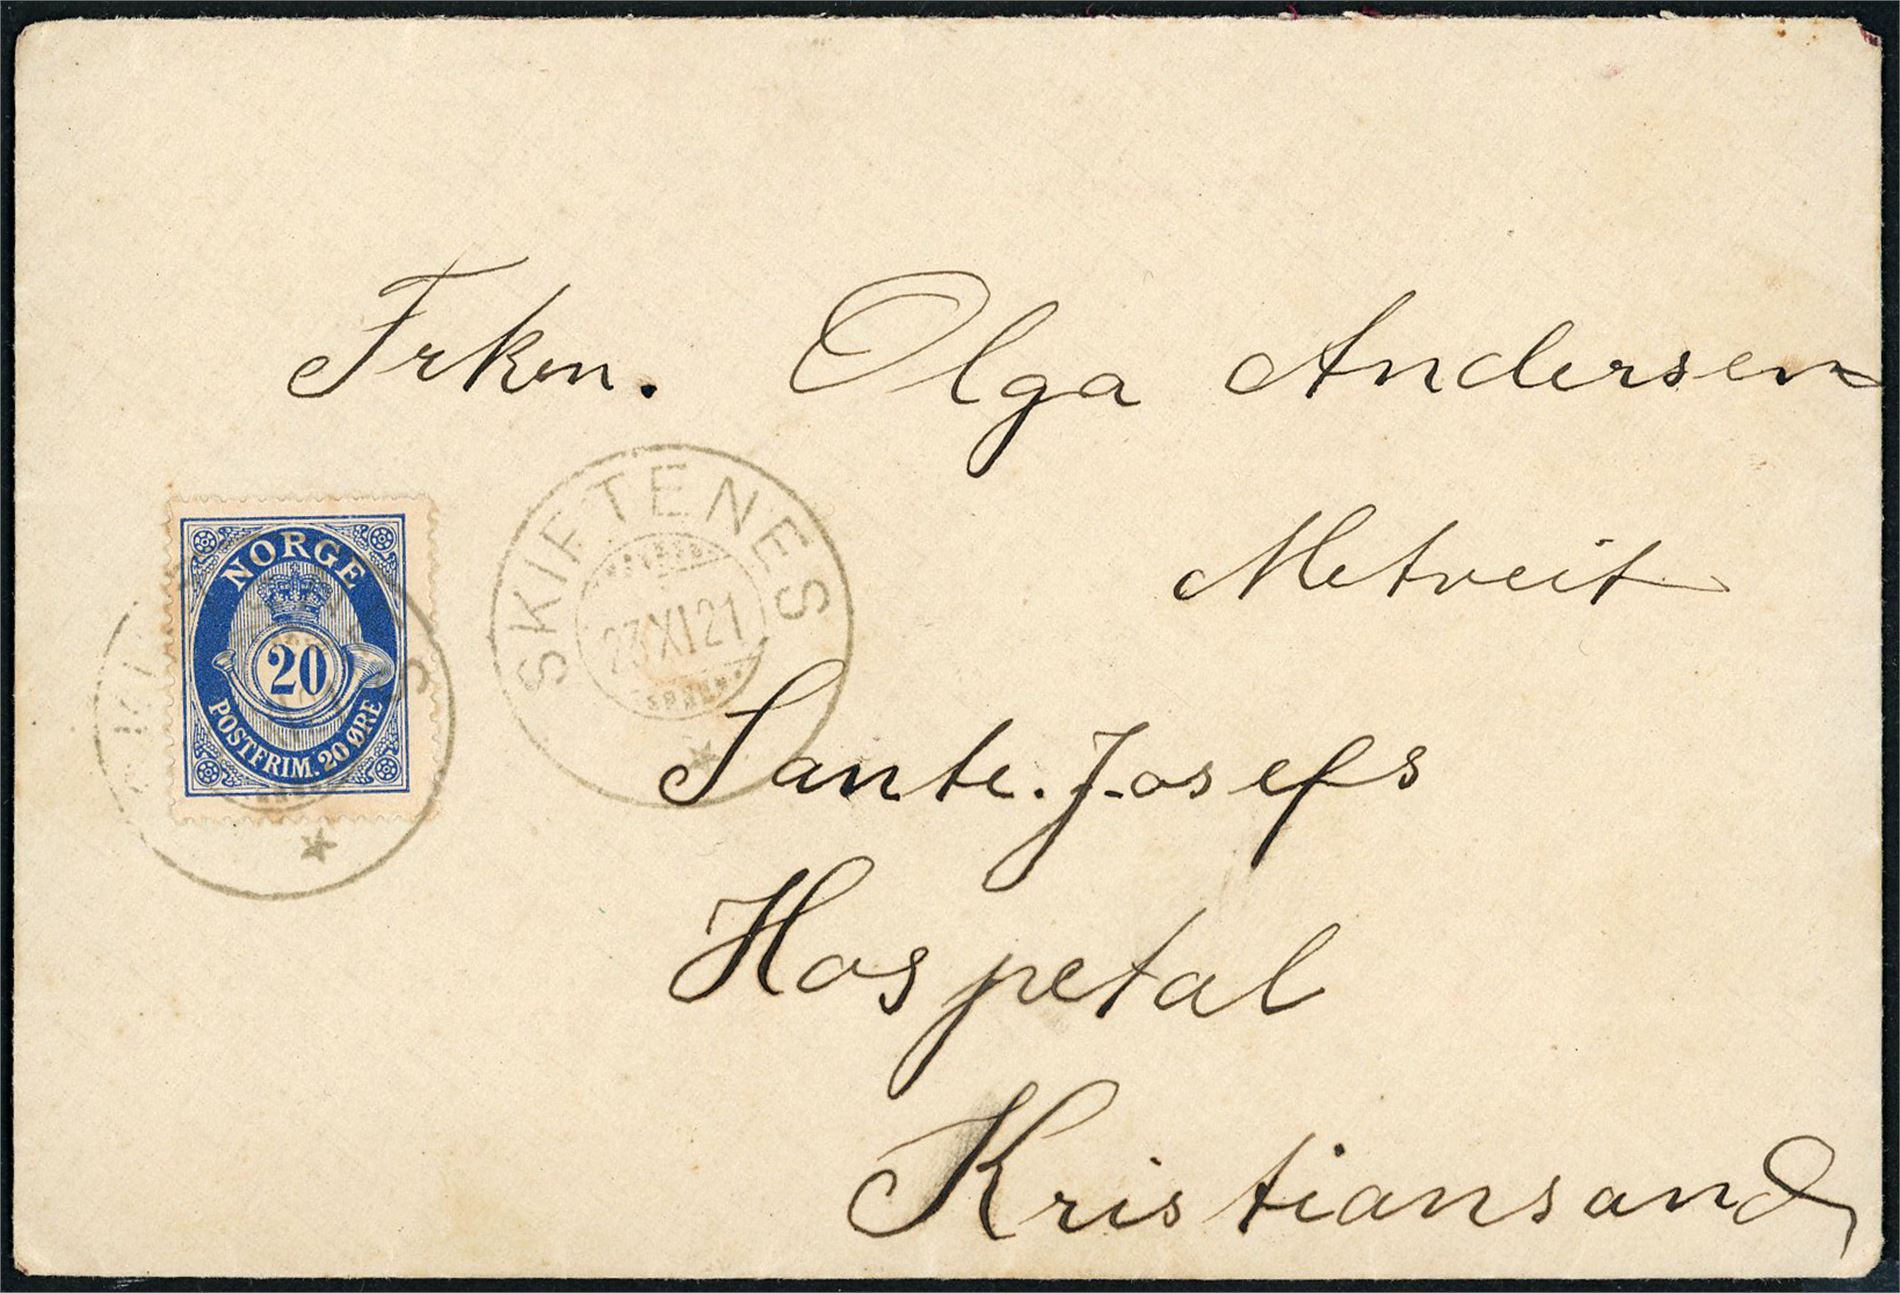 Frkn. Olga Andersen
Metveit
Sante. Josefs
Hospetal
Kristiansand
NORGE
20
POSTFRIM. 20 ØRE
SKIFTENES
23 XI 21